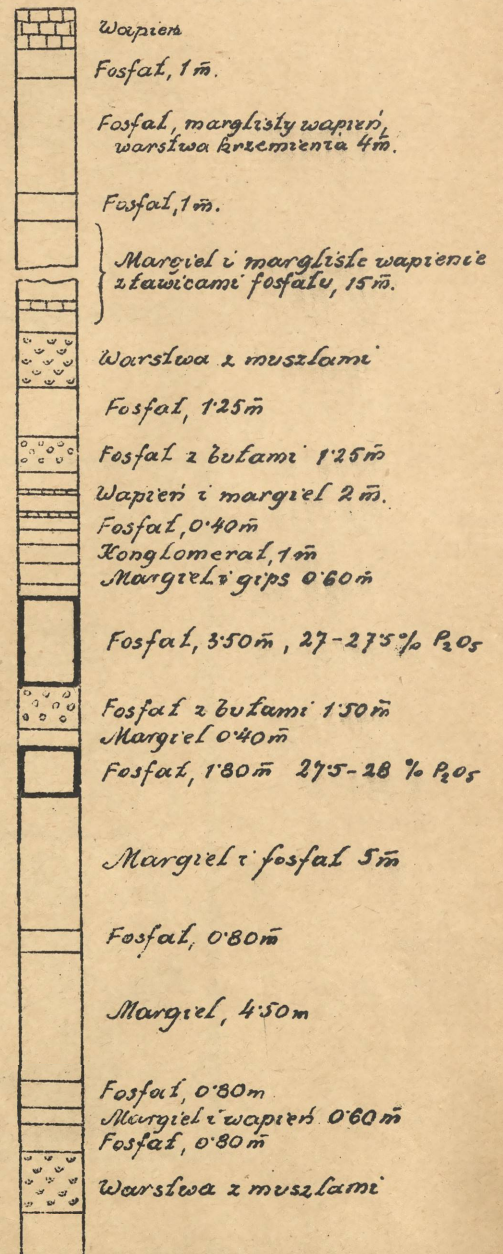 Wapień
Fosfat, 1 m̄.
Fosfat, marglisty wapień,
warstwa krzemienia 4m̄.
Fosfat, 1m̄.
Margiel i margliste wapienie
z ławicami fosfatu, 15m̄.
Warstwa z muszlami
Fosfat, 1·25m̄
Fosfat z bułami 1·25m̄
Wapień i margiel 2 m̄.
Fosfat, 0·40m̄
Konglomerat, 1m̄
Margiel i gips 0·60m̄
Fosfat, 3·50m̄, 27-27·5% P₂O₅
Fosfat z bułami 1·50m̄
Margiel 0·40m̄
Fosfat, 1·80m̄ 27·5-28 % P₂O₅
Margiel i fosfat 5m̄
Fosfat, 0·80m̄
Margiel, 4·50m
Fosfat, 0·80m
Margiel i wapień 0·60m̄
Fosfat, 0·80m̄
Warstwa z muszlami